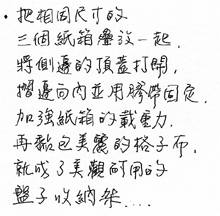 ・把相同尺寸的
三個紙箱疊放一起,
將側邊的頂蓋打開,
摺邊向內並用膠帶固定,
加強紙箱的載重力.
再黏包美麗的格子布,
就成了美觀耐用的
盤子收納架....